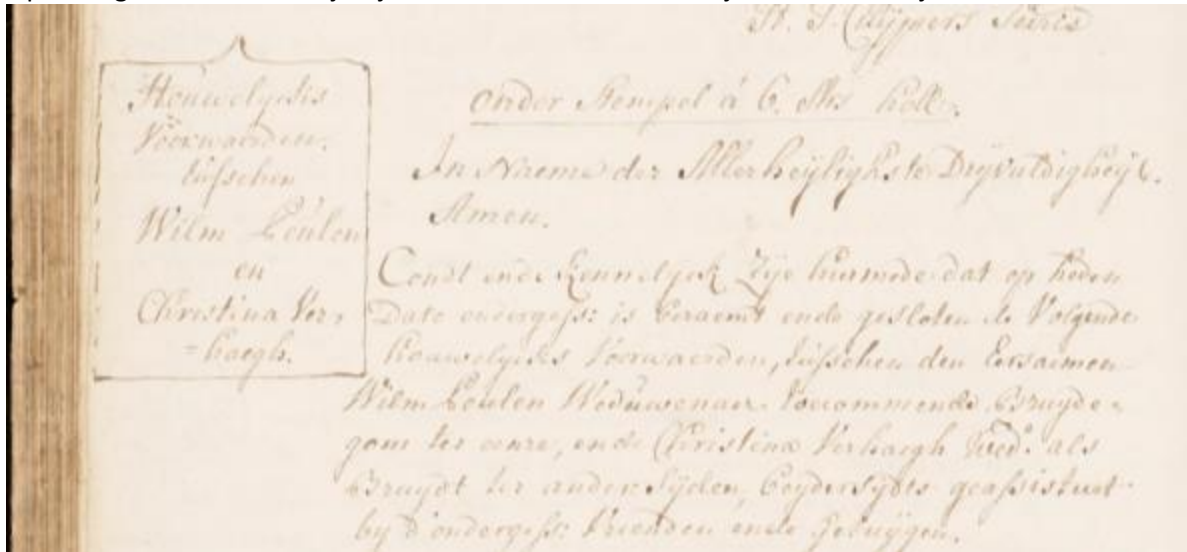 St. J. Cuÿpers Scris
Houwelyckis
Voorwaerden.
tusschen
Wilm Coulen
en
Christina Ver=
=haegh.
onder Stempel á 6. sts holl.
In Naeme der Allerheÿlighste Dreÿvuldigheÿt.
Amen.
Condt ende Kennelyck Zÿe hiermede dat op heden
Dato ondergess: is beraemt ende gesloten de Volgende
houwelyckx Voorwaerden, tusschen den Eersaemen
Wilm Coulen Weduwenaer toecommende Bruyde=
gom ter eenre, ende Christina Verhaegh Wed: als
Bruydt ter andere sÿden, beydersÿdts geassisteert
by d'ondergess: Vrienden ende Getuÿgen.